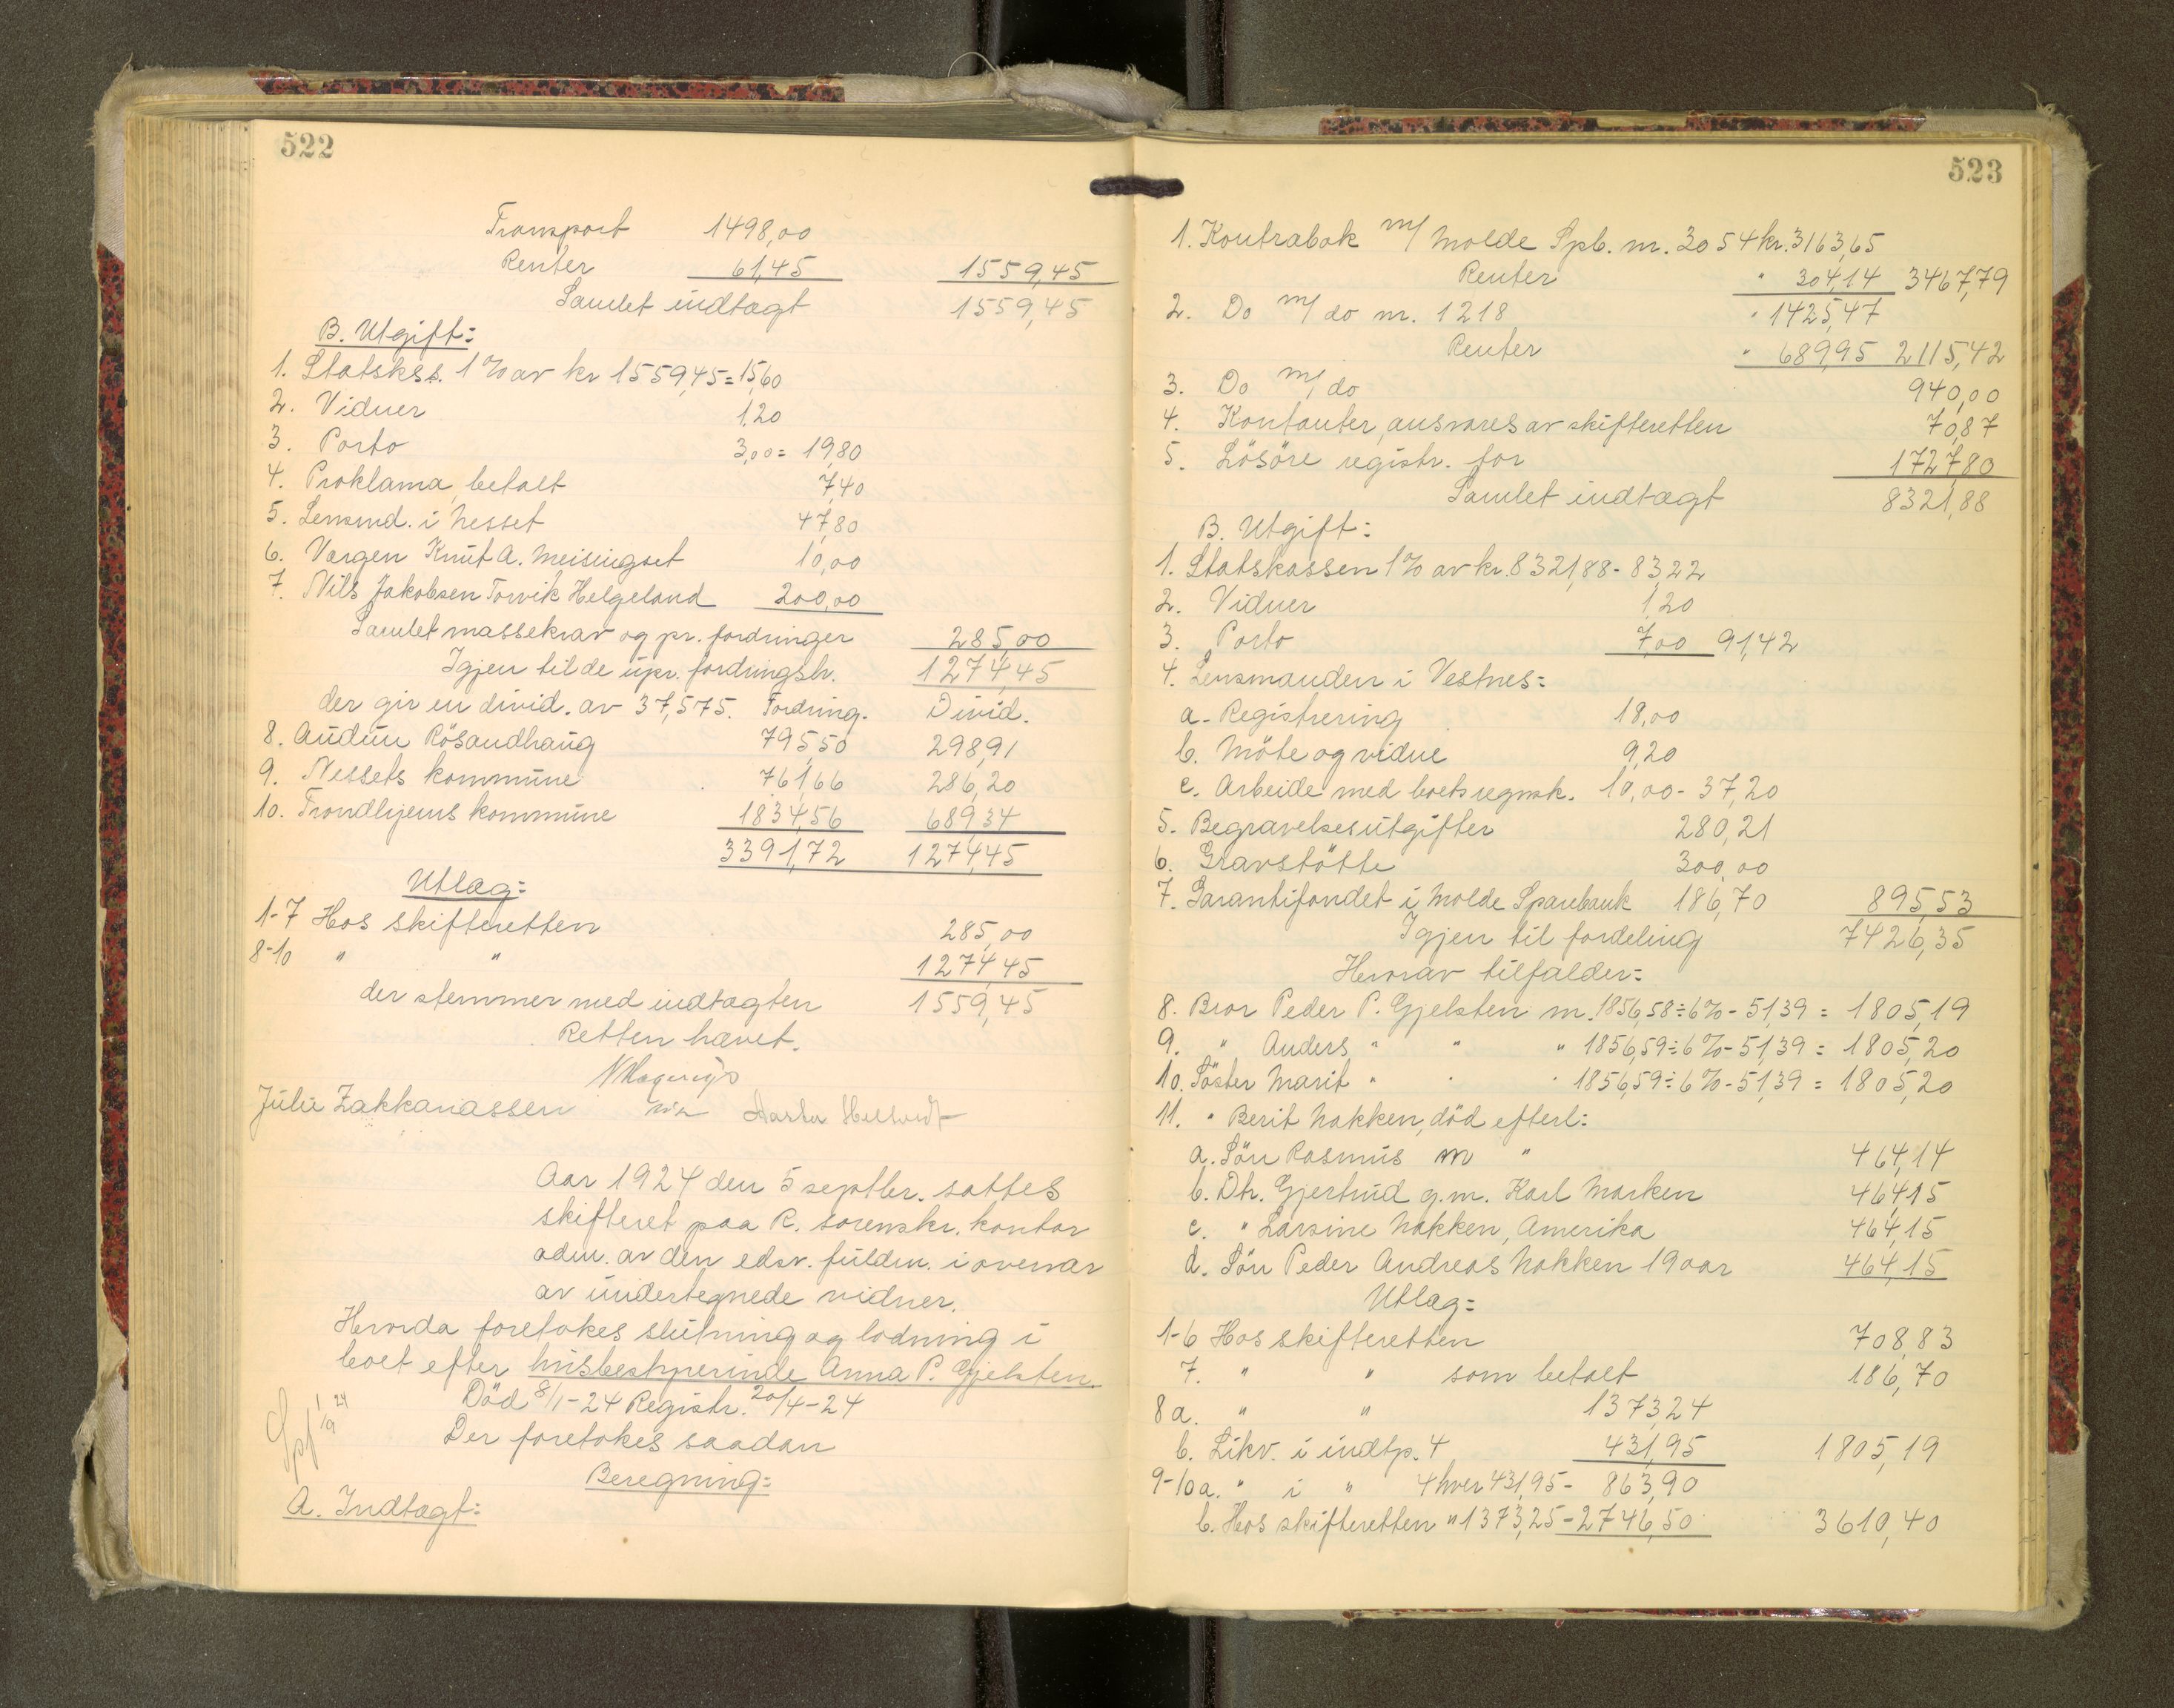 522
Transport 1498,00
Renter 61,45 1559,45
Samlet indtægt 1559,45
B. Utgift:
1. Statskss. 1% av kr 1559,45 = 15,60
2. Vidner 1,20
3. Porto 3,00 = 19,80
4. Proklama, betalt 7,40
5. Lensmd. i Nesset 47,80
6. Værgen Knut A. Meisingset 10,00
7. Nils Jakobsen Torvik Helgeland 200,00
Samlet massekrav og pr. fordringer 285,00
Igjen til de upr. fordringsh. 1274,45
der gir en divid. av 37,575. Fordring. Divid.
8. Audun Rösandhaug 795,50 298,91
9. Nessets kommune 761,66 286,20
10. Trondhjems kommune 1834,56 689,34
3391,72 1274,45
Utlæg:
1-7 Hos skifteretten 285,00
8-10 " " 1274,45
der stemmer med indtægten 1559,45
Retten hævet.
Julie Zakkariassen
Aar 1924 den 5 septbr. sattes
skifteret paa R. sorenskr. kontor
adm. av den edsv. fuldm. i overvær
av undertegnede vidner.
Hvorda foretokes slutning og lodning i
boet efter husbestyrerinde Anna P. Gjelsten.
Död 8/1-24 Registr. 20/4-24
Der foretokes saadan
Beregning:
A. Indtægt:
523
1. Kontrabok m/ Molde Spb. nr. 3054 kr. 3163,65
Renter " 304,14 3467,79
2. Do m/ do nr. 1218 " 1425,47
Renter " 689,95 2115,42
3. Do m/ do 940,00
4. Kontanter, ansvares av skifteretten 70,87
5. Lösöre registr. for 1727,80
Samlet indtægt 8321,88
B. Utgift:
1. Statskassen 1% av kr. 8321,88 - 83,22
2. Vidner 1,20
3. Porto 7,00 91,42
4. Lensmanden i Vestnes:
a. Registrering 18,00
b. Möte og vidne 9,20
c. Arbeide med boets regnsk. 10,00 - 37,20
5. Begravelsesutgifter 280,21
6. Gravstötte 300,00
7. Garantifondet i Molde Sparebank 186,70 895,53
Igjen til fordeling 7426,35
Hvorav tilfalder:
8. Bror Peder P. Gjelsten m. 1856,58 ÷ 6% - 51,39 = 1805,19
9. " Anders " " " 1856,59 ÷ 6% - 51,39 = 1805,20
10. Söster Marit " " " 1856,59 ÷ 6% - 51,39 = 1805,20
11. " Berit Nakken, död efterl:
a. Sön Rasmus m " 464,14
b. Dtr. Gjertrud g.m. Karl Marken 464,15
c. " Larsine Nakken, Amerika 464,15
d. Sön Peder Andreas Nakken 19 aar 464,15
Utlæg:
1-6 Hos skifteretten 708,83
7. " " som betalt 186,70
8 a. " " 1373,24
b. Likv. i indtp. 4 431,95 1805,19
9-10 a. " i " 4 hver 431,95 - 863,90
b. Hos skifteretten " 1373,25 - 2746,50 3610,40